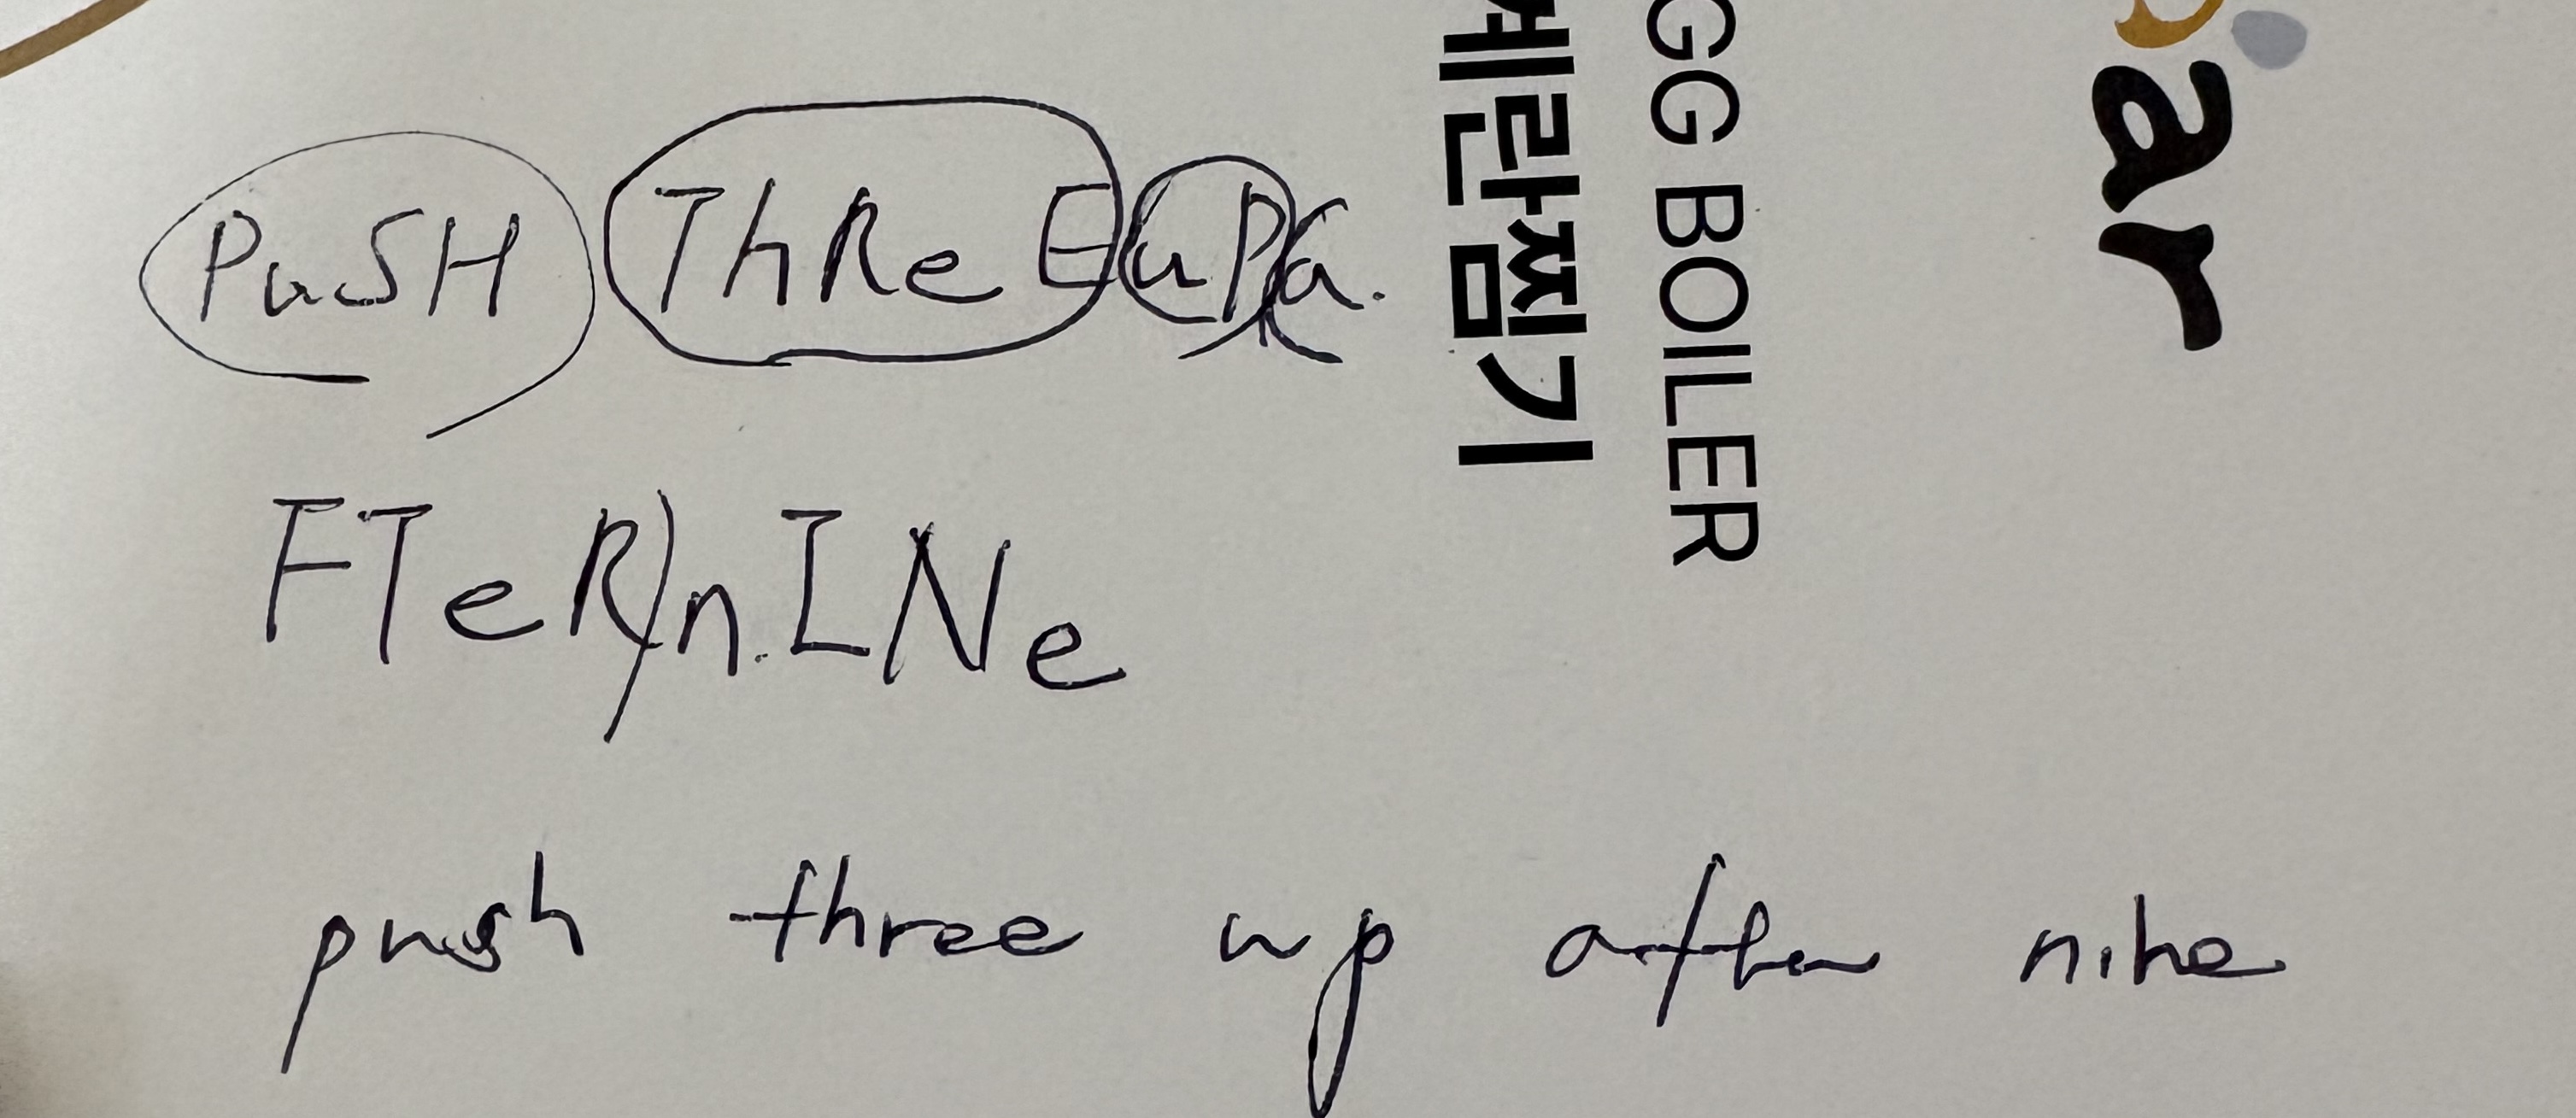 PuSH ThReEuPa.
FTeRnINe
push three up after nine
계란찜기
GG BOILER
ar